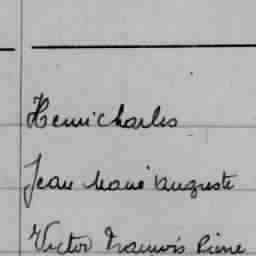 Henri Charles
Jean Marie Auguste
Victor François Pierre